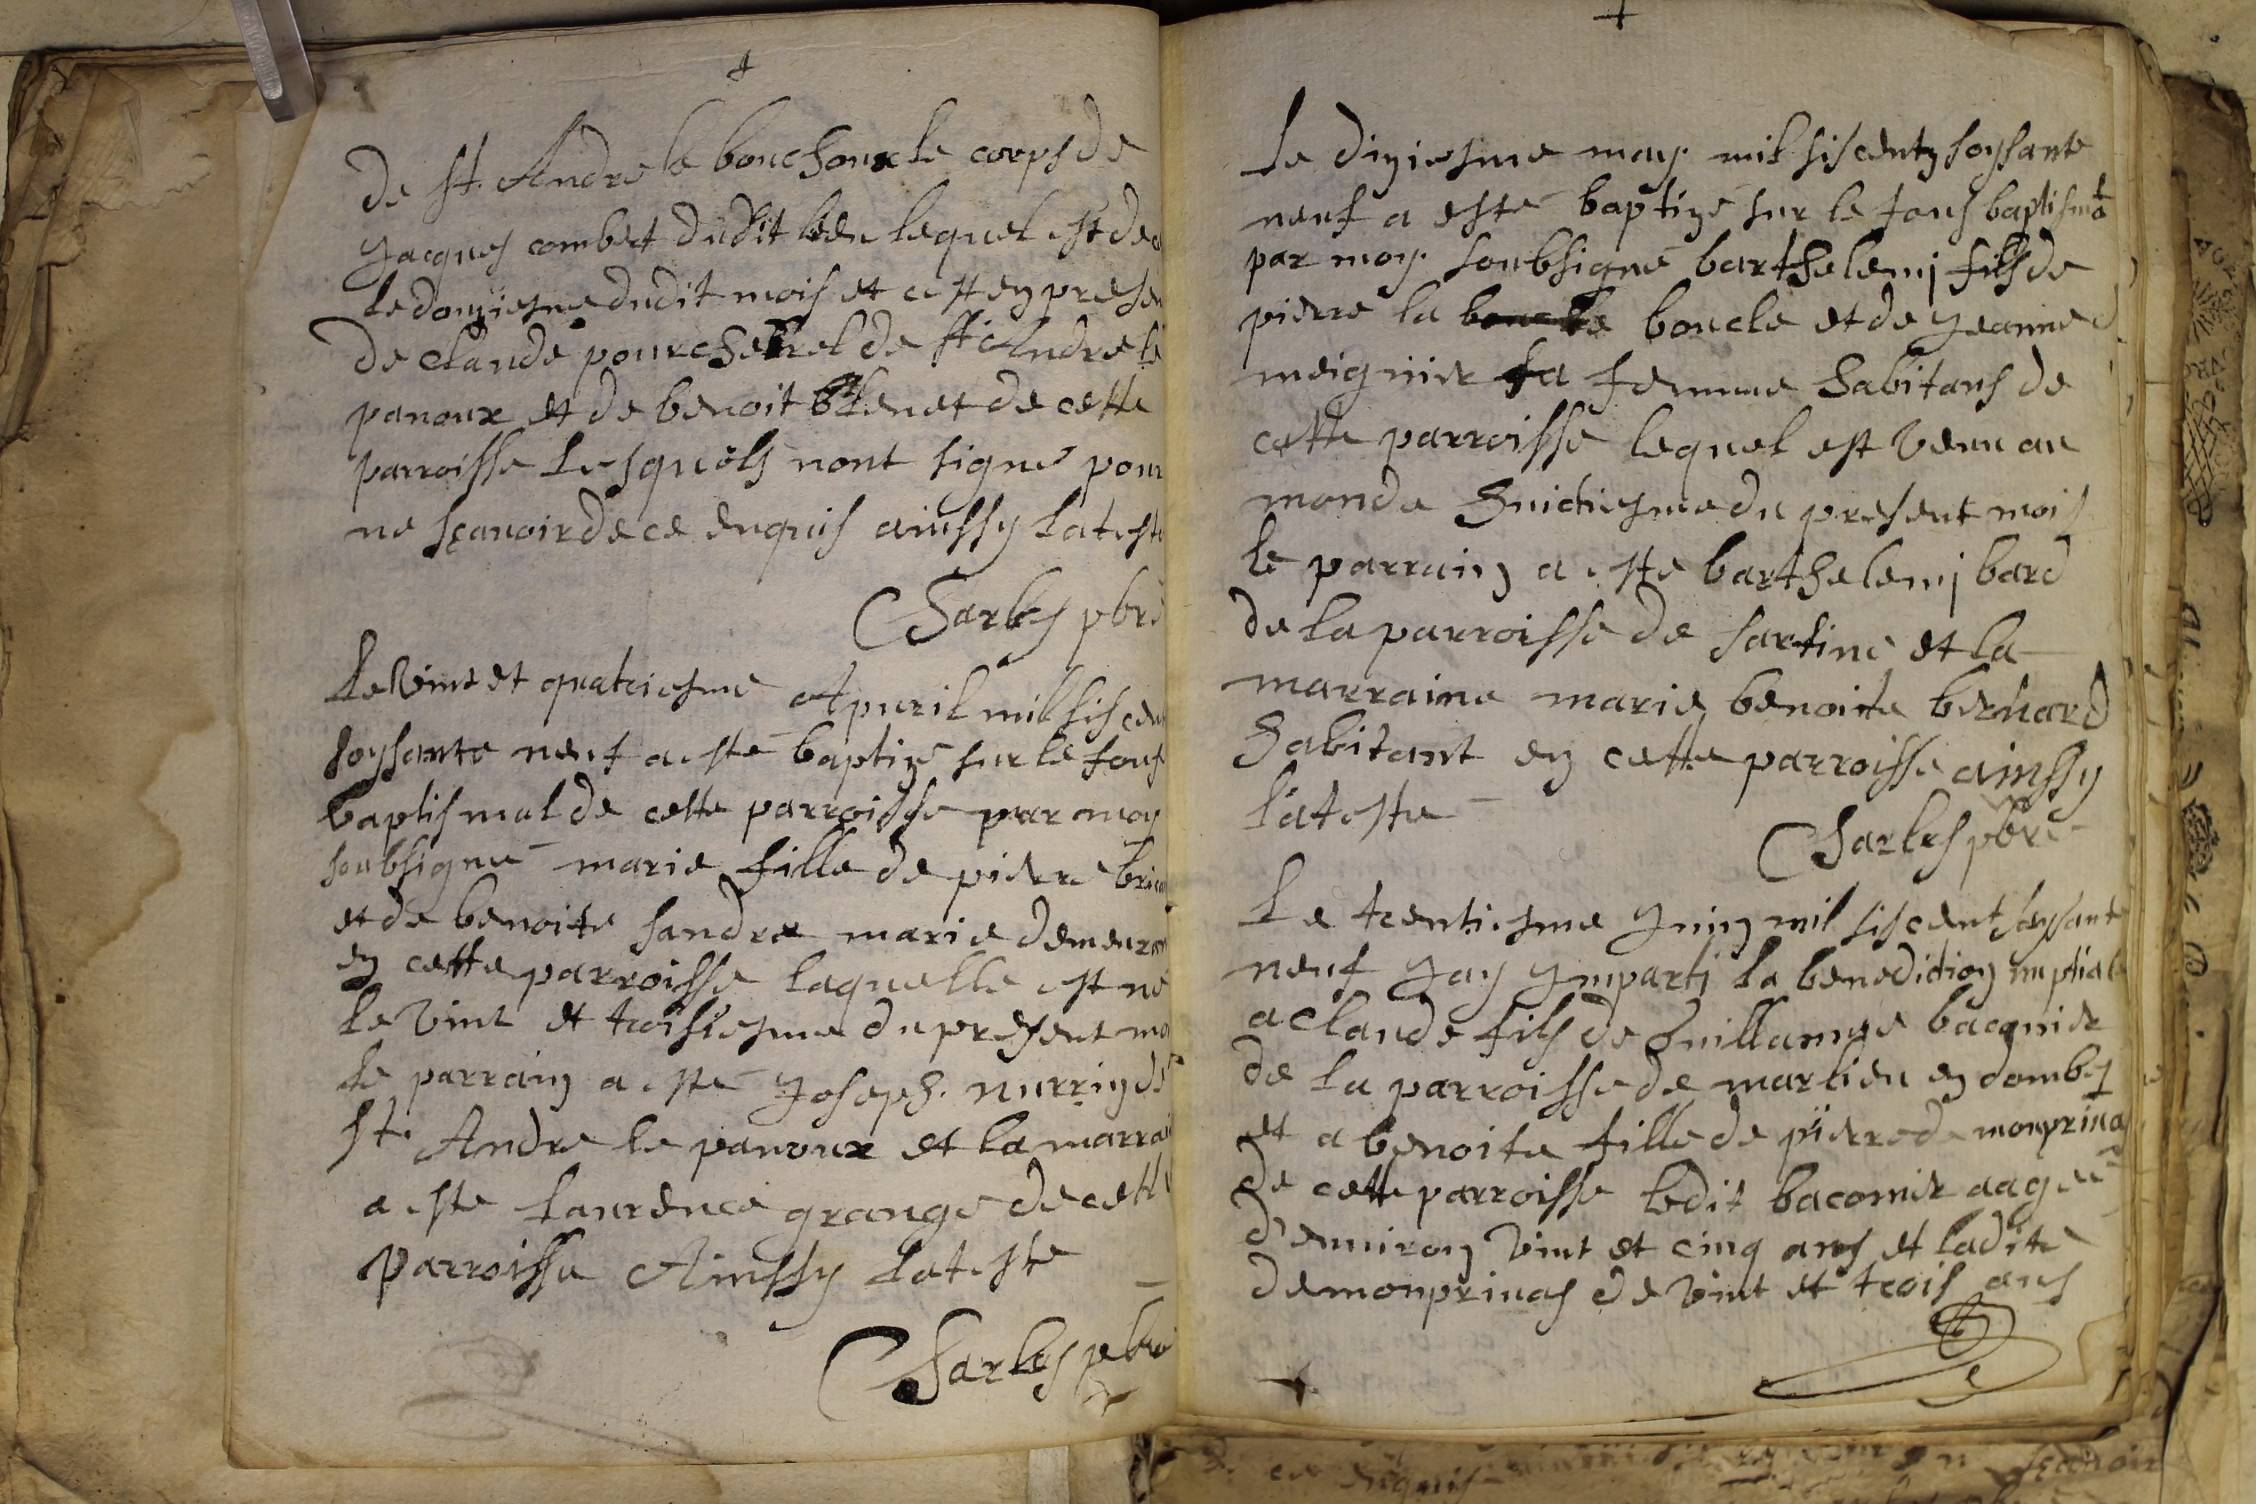 de st. Andre le bouchoux le corps de
Jacques combet dudit lieu lequel est dec
le douziesme dudit mois et cest en presen
de Claude pourcherel de st Andre le
panoux et de benoit de cette
parroisse Lesquels nont signé pour
ne sçavoir de ce enquis ainssy Lateste
Charles pbre
Le vint et quatriesme Apvril mil sis cent
soyssante neuf a esté baptizé sur le fons
baptismal de cette parroisse par moy
soubsigné marie fille de pierre
et de benoite sandre marie demeuran
en cette parroisse laquelle est né
le vint et troisiesme du present mo
le parrain a esté Joseph. nurrin de
st. Andre le panoux et la marrai
a este Laurence grange de cette
parroisse Ainssy Lateste
Charles pbre
Le diziesme may mil siscentz soyssante
neuf a esté baptizé sur le fons baptismal
par moy soubsigné barthelemj fils de
pierre la boucle boucle et de Jeanne
meignier sa femme habitans de
cette parroisse lequel est venu au
monde huictiesme du present mois
le parrain a este barthelemj bard
de la parroisse de sartine et la
marraine marie benoite bernard
habitant en cette parroisse ainssy
lateste
Charles pbre
Le trentiesme Juin mil siscent soyssante
neuf Jay Jmparti la benediction nuptiale
a Claude fils de Guillaume bacquier
de la parroisse de marlieu en dombes
et a benoite fille de pierre de monprinas
de cette parroisse ledit bacomier aagée
d'environ vint et cinq ans et ladite
demonprinas de vint et trois ans